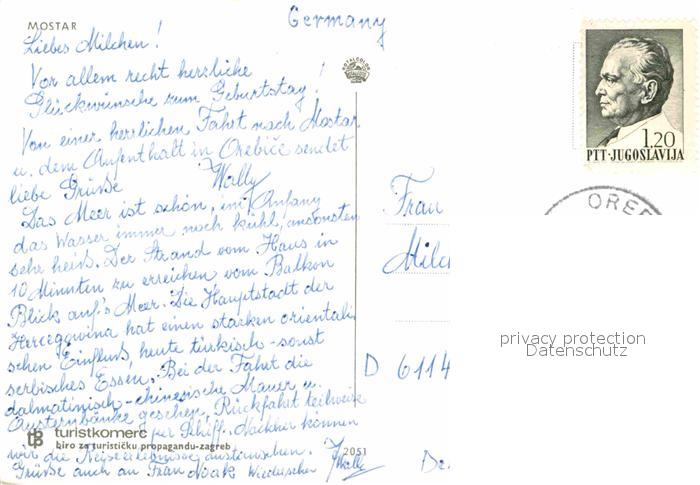 MOSTAR
Germany
Liebes Milchen!
Vor allem recht herzliche
Glückwünsche zum Geburtstag!
Von einer herrlichen Fahrt nach Mostar
u. dem Aufenthalt in Orebiče sendet
liebe Grüße Wally
Das Meer ist schön, im Anfang
das Wasser immer noch kühl, ansonsten
sehr heiß. Der Strand vom Haus in
10 Minuten zu erreichen vom Balkon
Blick auf's Meer. Die Hauptstadt der
Hercegowina hat einen starken orientali-
schen Einfluß, heute türkisch - sonst
serbisches Essen. Bei der Fahrt die
dalmatinisch-chinesische Mauer u.
Austernbänke gesehen. Rückfahrt teilweise
per Schiff. können
wir die Reiseerlebnisse austauschen.
Grüße auch an Frau Noak Wiedersehen Wally
turistkomerc
biro za turističku propagandu-zagreb
2051
ROTALCOLOR
1.20
PTT-JUGOSLAVIJA
OREB
Frau
Milc
D 6114
privacy protection
Datenschutz